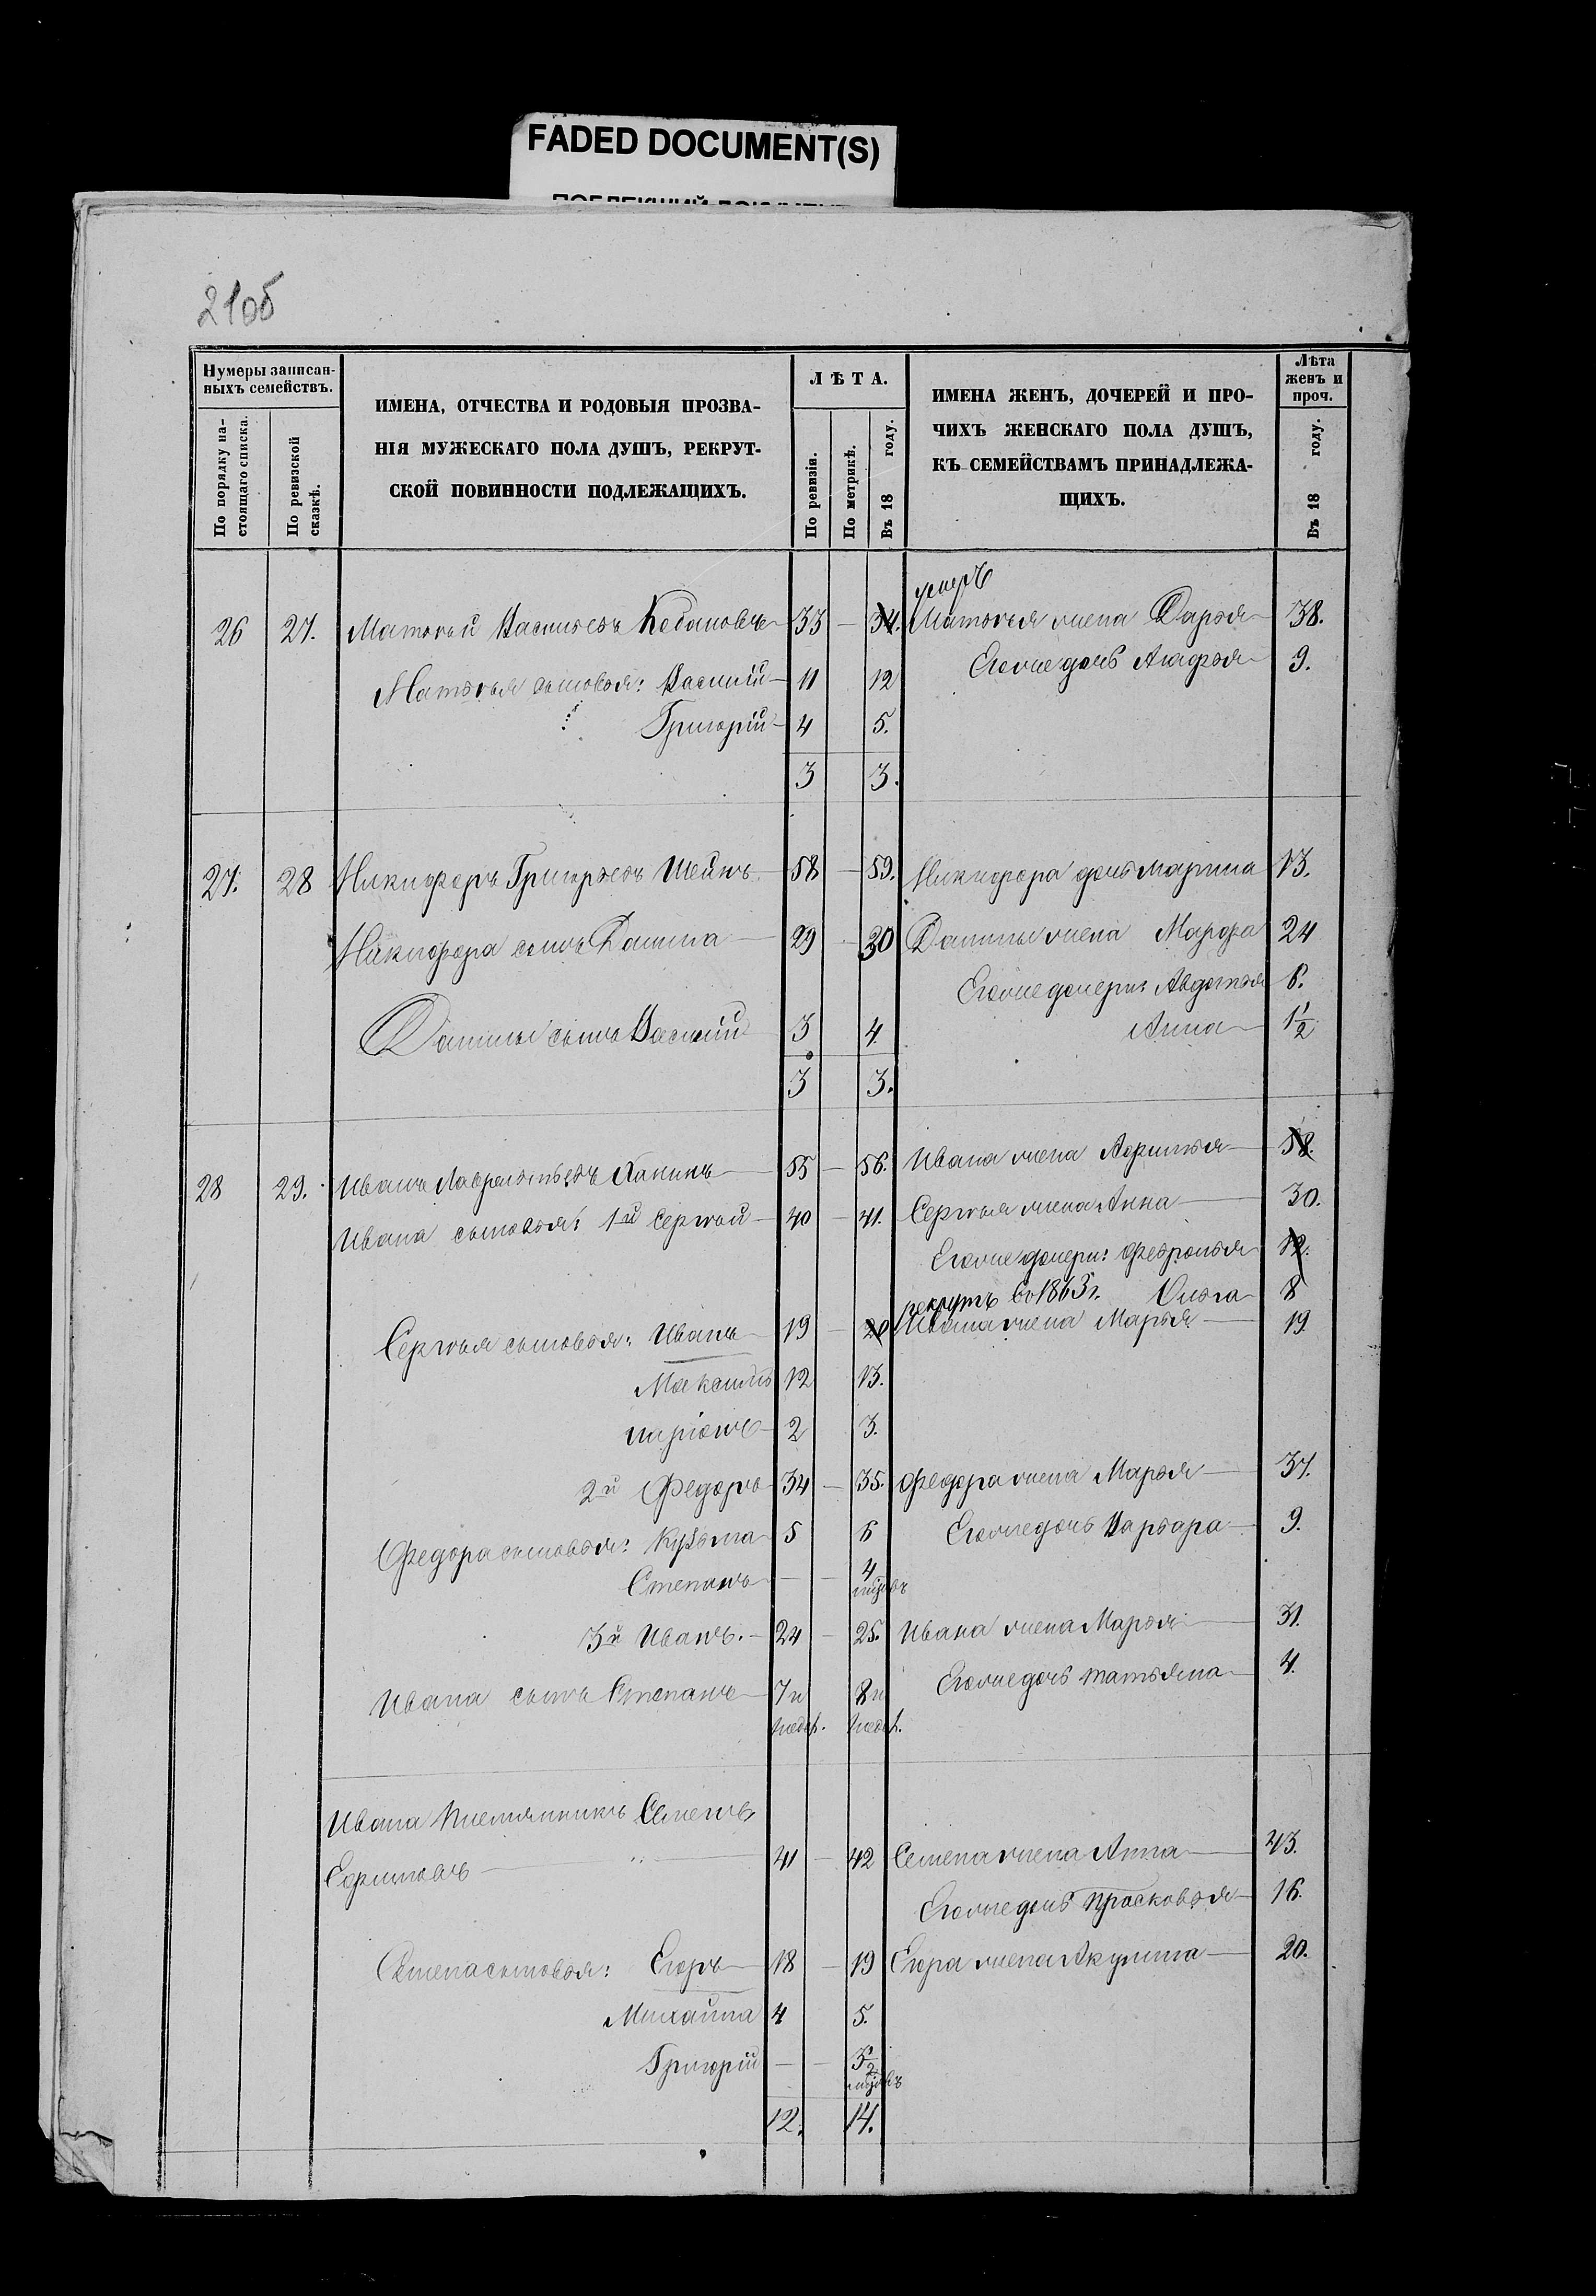 FADED DOCUMENT(S)
210б
Нумеры записан-
ныхъ семействъ.
По порядку на-
стоящаго списка.
По ревизской
сказкѣ.
ИМЕНА, ОТЧЕСТВА И РОДОВЫЯ ПРОЗВА-
НІЯ МУЖЕСКАГО ПОЛА ДУШЪ, РЕКРУТ-
СКОЙ ПОВИННОСТИ ПОДЛЕЖАЩИХЪ.
ЛѢТА.
По ревизіи.
По метрикѣ.
Въ 18 году.
ИМЕНА ЖЕНЪ, ДОЧЕРЕЙ И ПРО-
ЧИХЪ ЖЕНСКАГО ПОЛА ДУШЪ,
КЪ СЕМЕЙСТВАМЪ ПРИНАДЛЕЖА-
ЩИХЪ.
Лѣта
женъ и
проч.
Въ 18 году.
умеръ
26 27. Матвѣй Васильевъ 33 — 34. Матвѣя жена Дарья 38.
Матвѣя сыновья: Василій 11 12 Его же дочь Агафья 9.
Григорій 4 5.
3 3.
27. 28 Никифоръ Григорьевъ Шеинъ 58 — 59. Никифора дочь Марина 13.
Никифора сынъ Данила 29 — 30 Данилы жена Марфа 24
Его же дочери: Авдотья 6.
Данилы сынъ Василий 3 4. Анна 1½
3 3.
28 29. Иванъ Лаврентьевъ Панинъ 55 — 56. Ивана жена Афимья 58.
Ивана сыновья: 1й Сергѣй 40 — 41. Сергѣя жена Анна 30.
Его же дочери: Февронья 12.
рекрутъ въ 1863 г. Ольга 8
Сергѣя сыновья: Иванъ 19 — 20 Ивана жена Марья 19.
Максимъ 12 13.
Ларіонъ 2 3.
2й Федоръ 34 — 35. Федора жена Марья 37.
Федора сыновья: Кузьма 5 6 Его же дочь Варвара 9.
Степанъ — — 4
3й Иванъ. 24 — 25. Ивана жена Марья 31.
Ивана сынъ Степанъ 7 н 8 н Его же дочь Татьяна 4.
недѣл. недѣл.
Ивана племянникъ Семенъ
Ефимовъ 41 — 42 Семена жена Анна 43.
Его же дочь Прасковья 16.
Семена сыновья: Егоръ 18 — 19 Егора жена Акулина 20.
Михайла 4 5.
Григорій — —
12. 14.